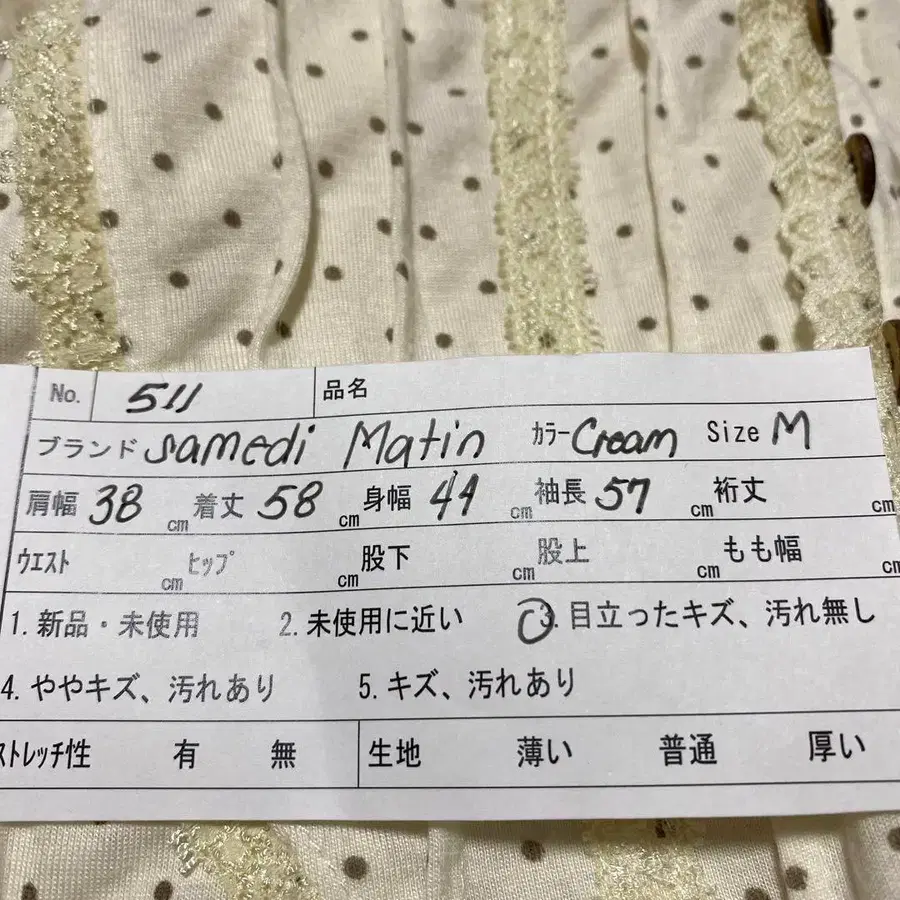 No. 511 品名
ブランド samedi Matin カラー Cream Size M
肩幅 38 cm 着丈 58 cm 身幅 44 cm 袖長 57 cm 裄丈 cm
ウエスト cm ヒップ cm 股下 cm 股上 cm もも幅 cm
1. 新品・未使用 2. 未使用に近い 3. 目立ったキズ、汚れ無し
4. ややキズ、汚れあり 5. キズ、汚れあり
ストレッチ性 有 無 生地 薄い 普通 厚い